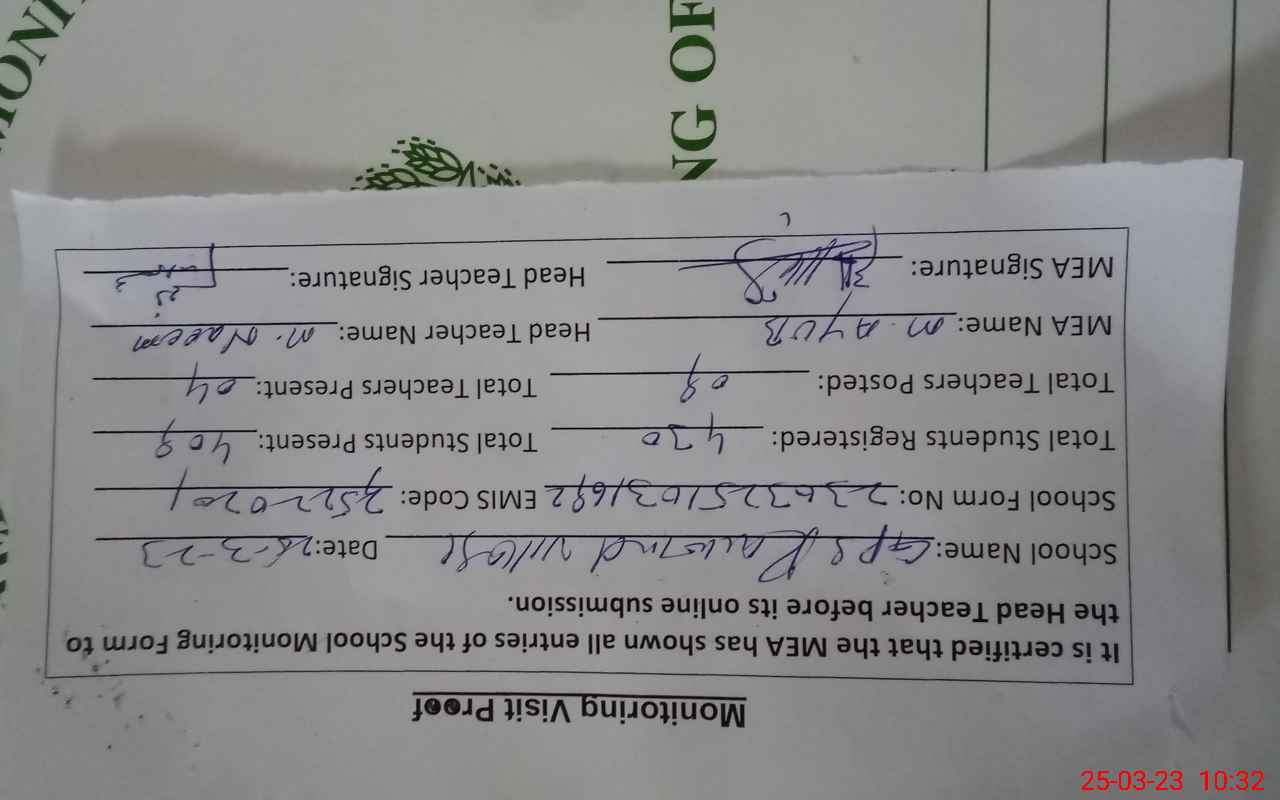 Monitoring Visit Proof
It is certified that the MEA has shown all entries of the School Monitoring Form to
the Head Teacher before its online submission.
School Name: GPS Raiwind village Date: 25-3-23
School Form No: EMIS Code:
Total Students Registered: 430 Total Students Present: 408
Total Teachers Posted: 08 Total Teachers Present: 04
MEA Name: M. AYUB Head Teacher Name: M. Naeem
MEA Signature: Head Teacher Signature:
NG OF
MONI
25-03-23 10:32